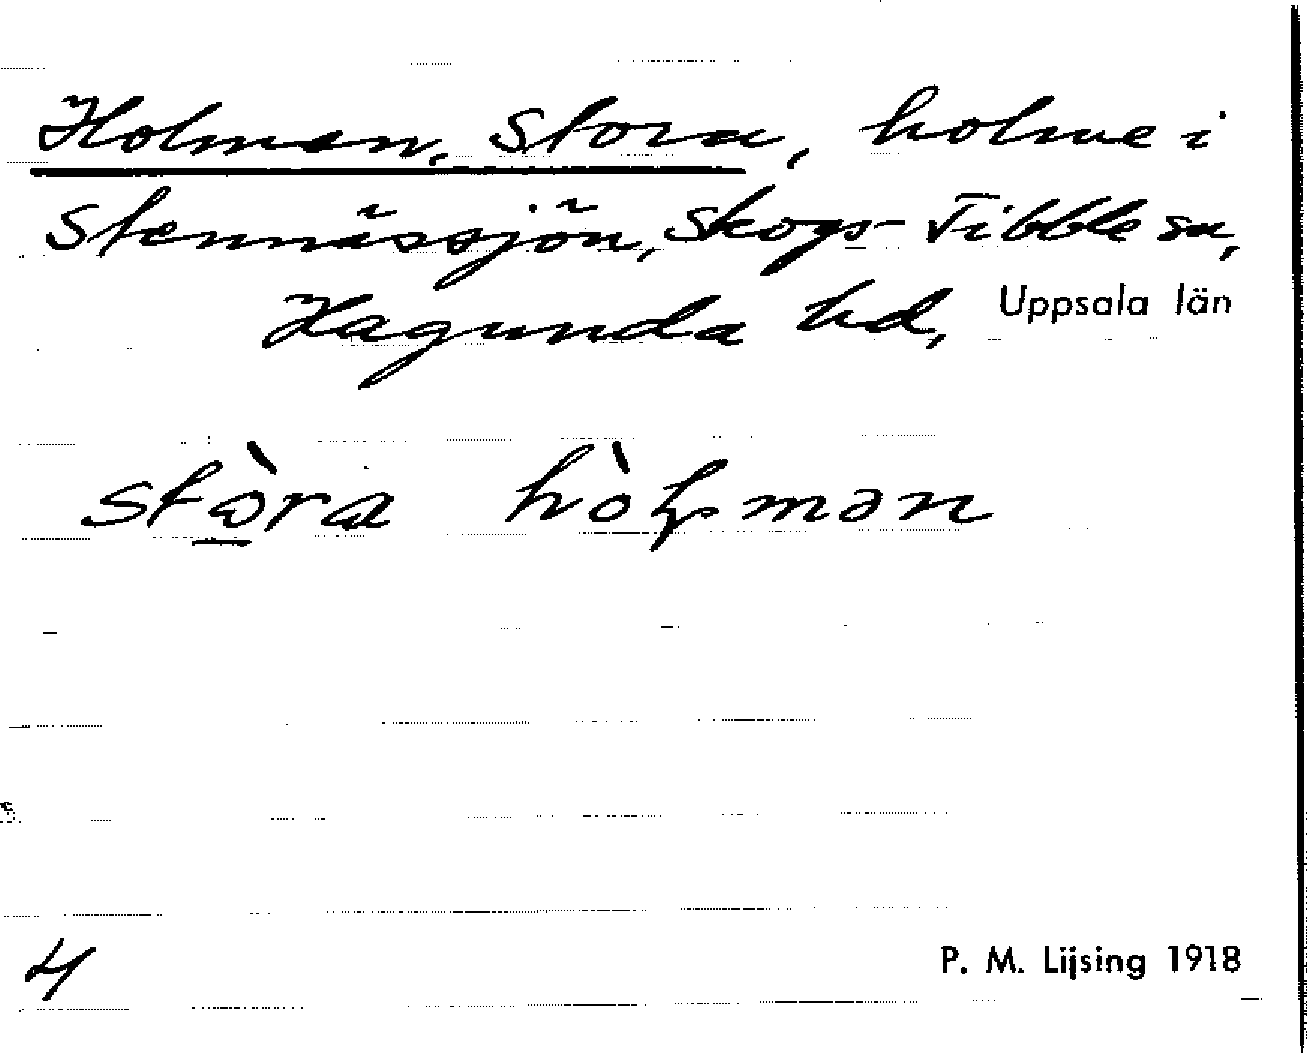 Holmen, Stora, holme i
Stennässjön, Skogs-Tibble sn,
Hagunda hd, Uppsala län
stɷ̀ra hòɫmən
4
P. M. Lijsing 1918